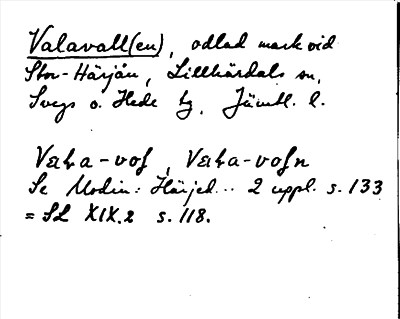 Valavall(en), odlad mark vid
Stor-Härjån, Lillhärdals sn,
Svegs o. Hede tg, Jämtl. l.
Se Modin: Härjed... 2 uppl. s. 133
= SL XIX.2 s. 118.